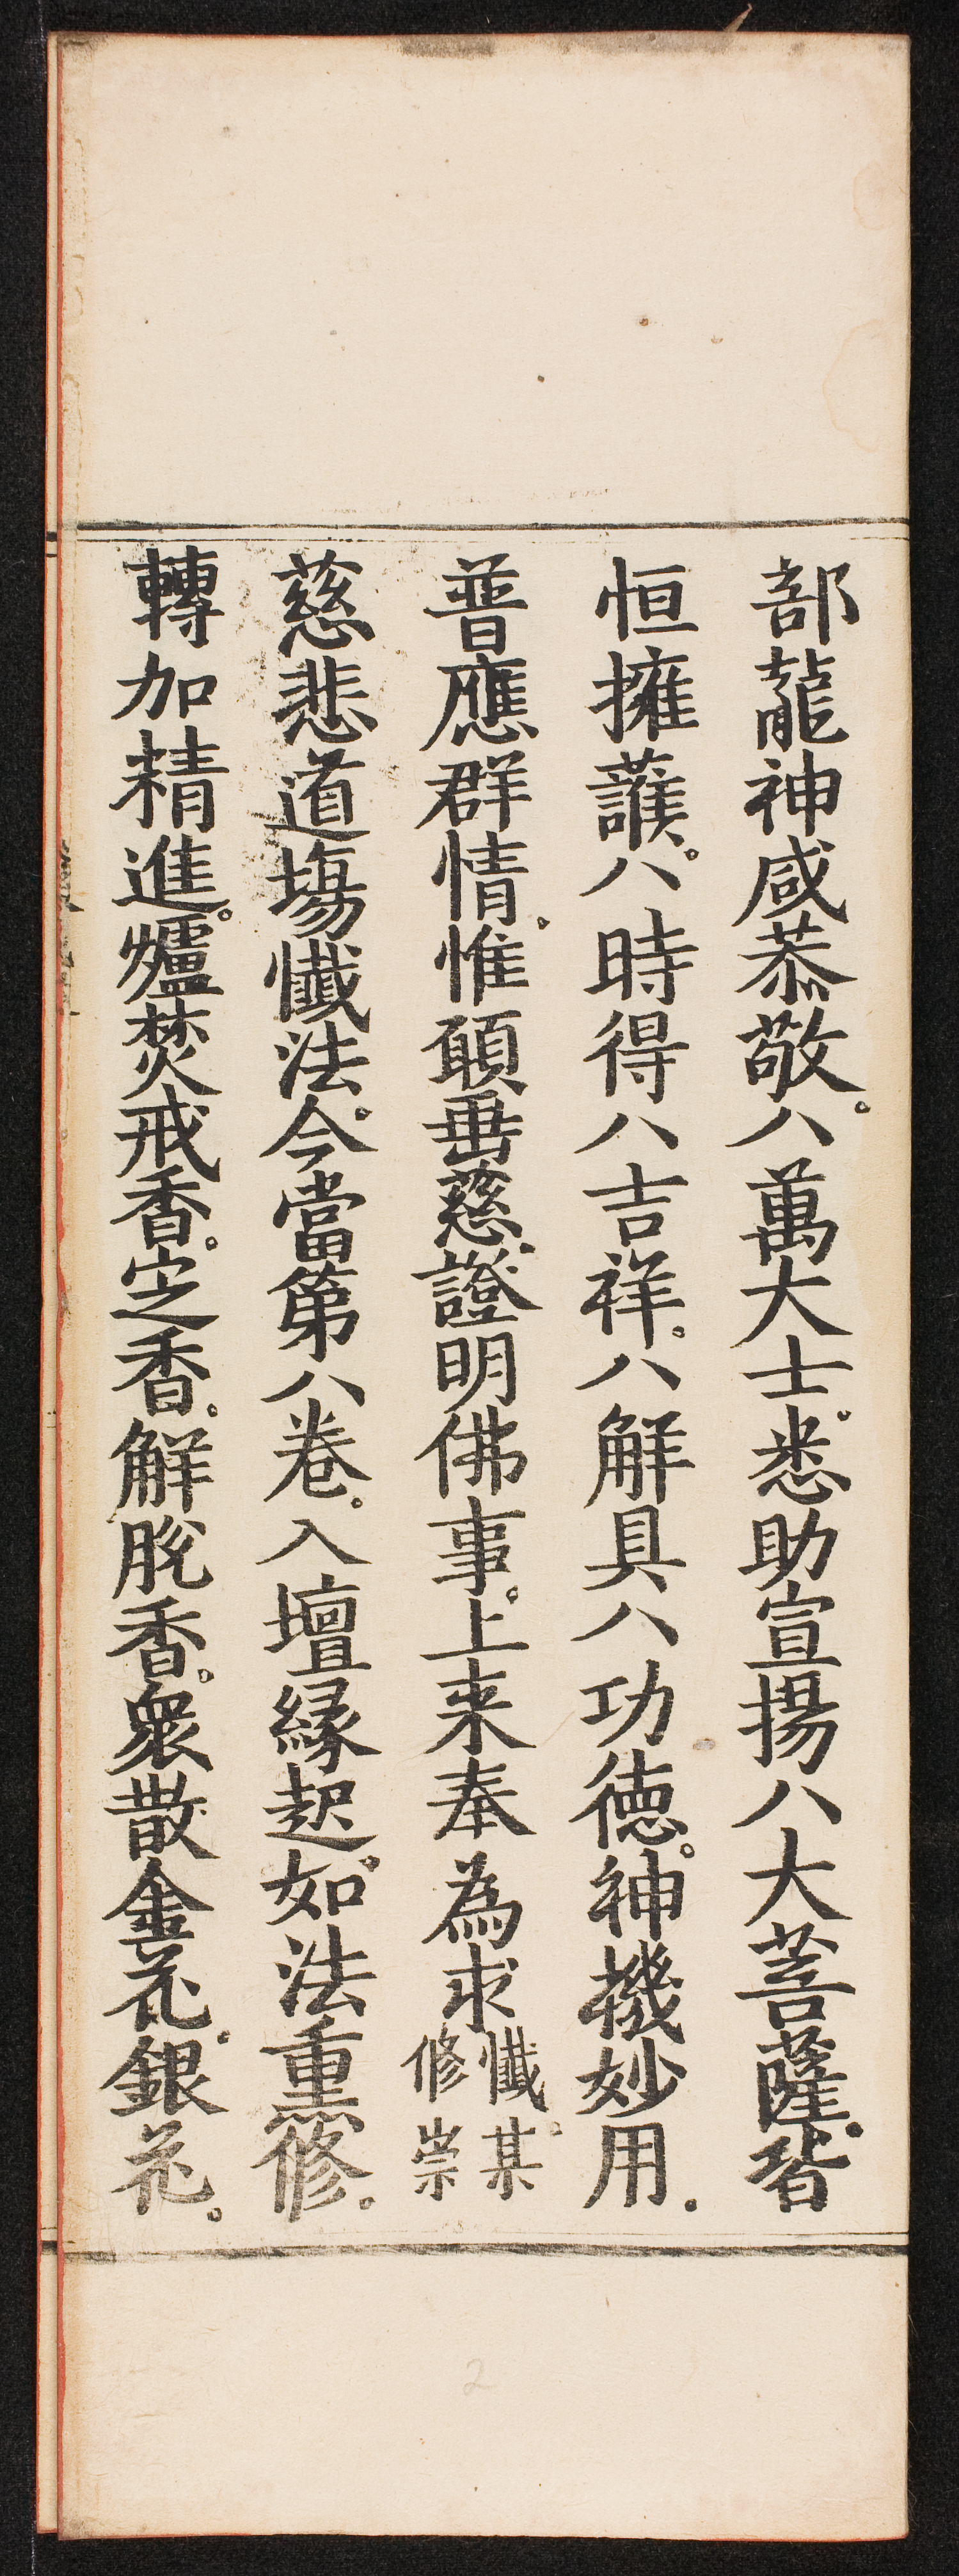 部龍神咸恭敬。八萬大士。悉助宣揚八大菩薩。皆
恒擁護。八時得八吉祥。八解具八功德。神機妙用。
普應群情。惟願垂慈。證明佛事。上来奉為求懺某。修崇
慈悲道塲懺法。今當第八卷。入壇緣起。如法熏修。
轉加精進。爐焚戒香。定香。解脫香。衆散金花。銀花。
2